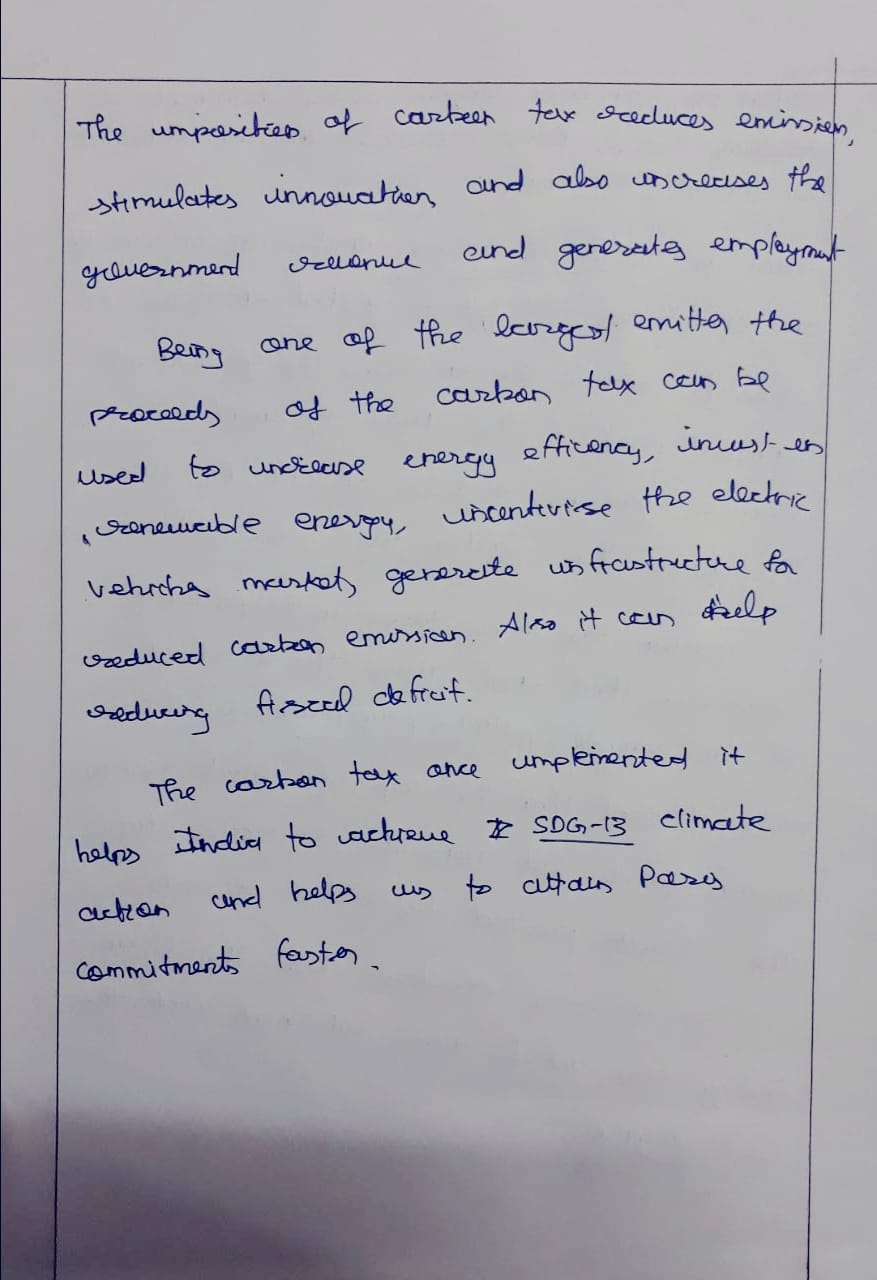 The imposition of carbon tax reduces emission,
stimulates innovation, and also increases the
government revenue and generates employment
Being one of the largest emitter the
proceeds of the carbon tax can be
used to increase energy efficency, invest in
renewable energy, incentivise the electric
vehicles market, generate infrastructure for
reduced carbon emission. Also it can help
reducing fiscal deficit.
The carbon tax once implemented it
helps India to achieve SDG-13 climate
action and helps us to attain Paris
commitments faster.